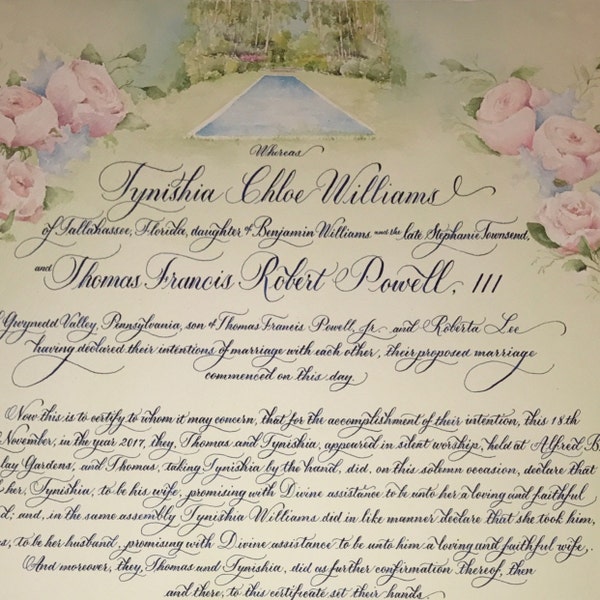 Whereas
Tynishia Chloe Williams
of Tallahassee, Florida, daughter of Benjamin Williams and the late Stephanie Townsend,
and Thomas Francis Robert Powell, III
Gwynedd Valley, Pennsylvania, son of Thomas Francis Powell, Jr. and Roberta Lee
having declared their intentions of marriage with each other, their proposed marriage
commenced on this day.
Now this is to certify to whom it may concern, that for the accomplishment of their intention, this 18th
November, in the year 2017, they, Thomas and Tynishia, appeared in silent worship, held at Alfred B.
lay Gardens, and Thomas, taking Tynishia by the hand, did, on this solemn occasion, declare that
her, Tynishia, to be his wife, promising with Divine assistance to be unto her a loving and faithful
d; and, in the same assembly Tynishia Williams did in like manner declare that she took him,
s, to be her husband, promising with Divine assistance to be unto him a loving and faithful wife,.
And moreover, they Thomas and Tynishia, did as further confirmation thereof, then
and there, to this certificate set their hands.